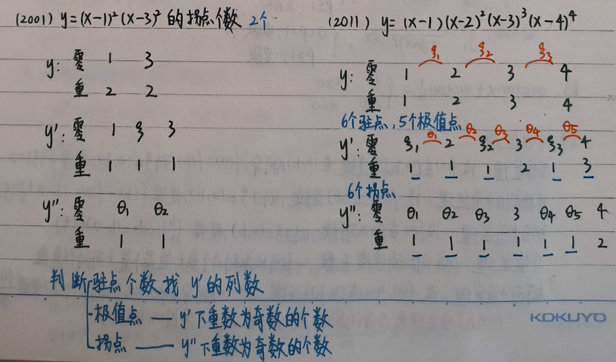 (2001) y=(x-1)²(x-3)² 的拐点个数 2个
y: 零 1 3
重 2 2
y': 零 1 ξ 3
重 1 1 1
y'': 零 θ1 θ2
重 1 1
(2011) y=(x-1)(x-2)²(x-3)³(x-4)⁴
ξ1 ξ2 ξ3
y: 零 1 2 3 4
重 1 2 3 4
6个驻点,5个极值点
θ1 θ2 θ3 θ4 θ5
y': 零 ξ1 2 ξ2 3 ξ3 4
重 1 1 1 2 1 3
6个拐点
y'': 零 θ1 θ2 θ3 3 θ4 θ5 4
重 1 1 1 1 1 1 2
判断驻点个数找 y' 的列数
极值点 — y' 下重数为奇数的个数
拐点 — y'' 下重数为奇数的个数
KOKUYO